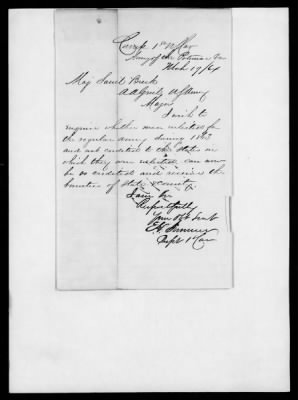 Camp 1st U.S. Cav
Army of the Potomac Va
March 17/64
Maj Saml Breck
A.A. Genl U.S. Army
Major
I wish to
inquire whether men enlisted for
the regular army during 1863
and not credited to the States in
which they were enlisted can now
be so credited and receive the
bounties of State & County.
I am Sir
Respectfully
Your Obt Servt
E.V. Sumner
Capt 1st Cav